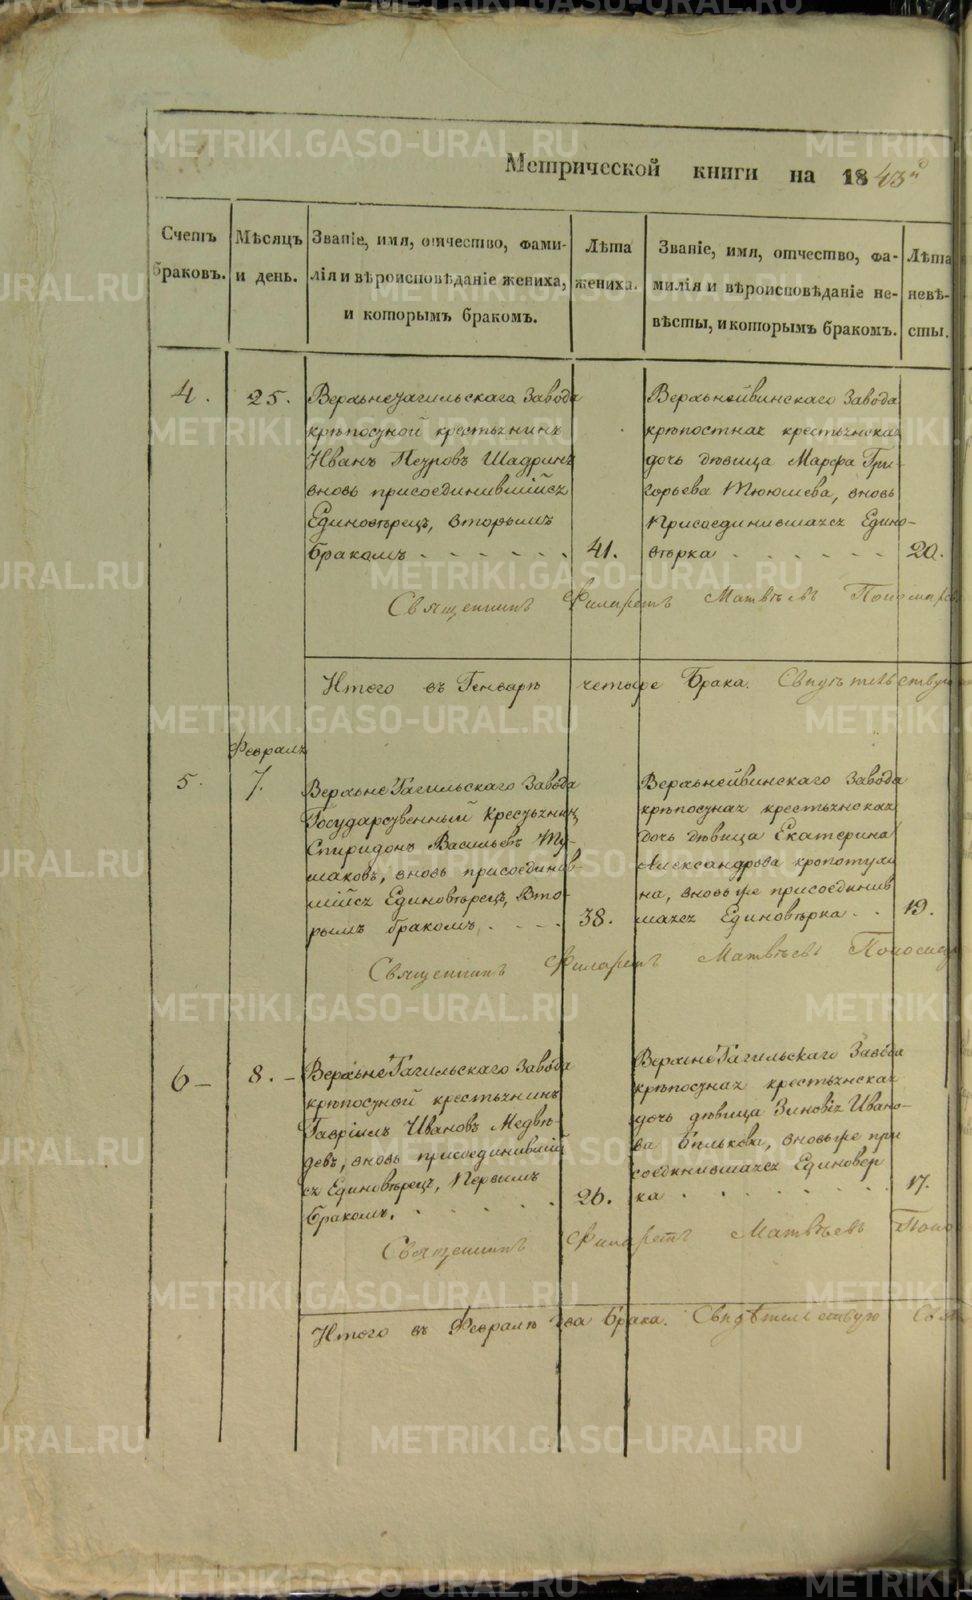 Метрической книги на 1843й
Счетъ браковъ.
Мѣсяцъ и день.
Званіе, имя, отчество, фами-
лія и вѣроисповѣданіе жениха,
и которымъ бракомъ.
Лѣта
жениха.
Званіе, имя, отчество, фа-
милія и вѣроисповѣданіе не-
вѣсты, и которымъ бракомъ.
Лѣта
невѣ-
сты.
4.
25.
Верхнетагильскага Завода
крѣпостной крестьянинъ
Иванъ Петровъ Шадринъ
вновь присоединившійся
Единовѣрецъ, вторымъ
бракомъ
41.
Верхьнейвинскаго Завода
крѣпостная крестьянская
дочь дѣвица Марфа Гри-
горьева Тююшева, вновь
Присоединившаяся Едино-
вѣрка
20.
Священникъ Филаретъ Матвѣевъ Пономарев
Итого въ Генварѣ четыре Брака. Свидѣтельствую
Февраля
5.
7.
ВерхьнеТагильскаго Завода
Государственный Крестьянинъ
Спиридонъ Васильевъ Ту-
маковъ, вновь присоединив-
шійся Единовѣрецъ, Вто-
рымъ бракомъ,
38.
Верхьнейвинскаго Завода
крѣпостная крестьянская
дочь дѣвица Екатерина
Александрова кропотухи
на, вновь же присоединив
шаяся Единовѣрка
19.
Священникъ Филаретъ Матвѣевъ
6
8.
ВерхьнеТагильскаго Завода
крѣпостной крестьянинъ
Гавріилъ Ивановъ Медвѣ-
девъ, вновь присоединившій
ся Единовѣрецъ, Первымъ
Бракомъ.
26.
ВерхнеТагильскаго Завода
крѣпостная крестьянская
дочь дѣвица Зиновія Ивано-
ва Бѣлькова, вновь же при
соединившаяся Единовер
ка
17.
Священникъ Филаретъ Матвѣевъ Поно
Итого въ Февралѣ два Брака. Свидѣтельствую Свя
METRIKI.GASO-URAL.RU